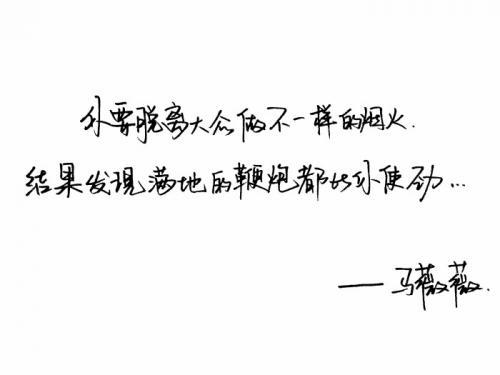 你要脱离大众做不一样的烟火.
结果发现满地的鞭炮都比你使劲...
——马薇薇.